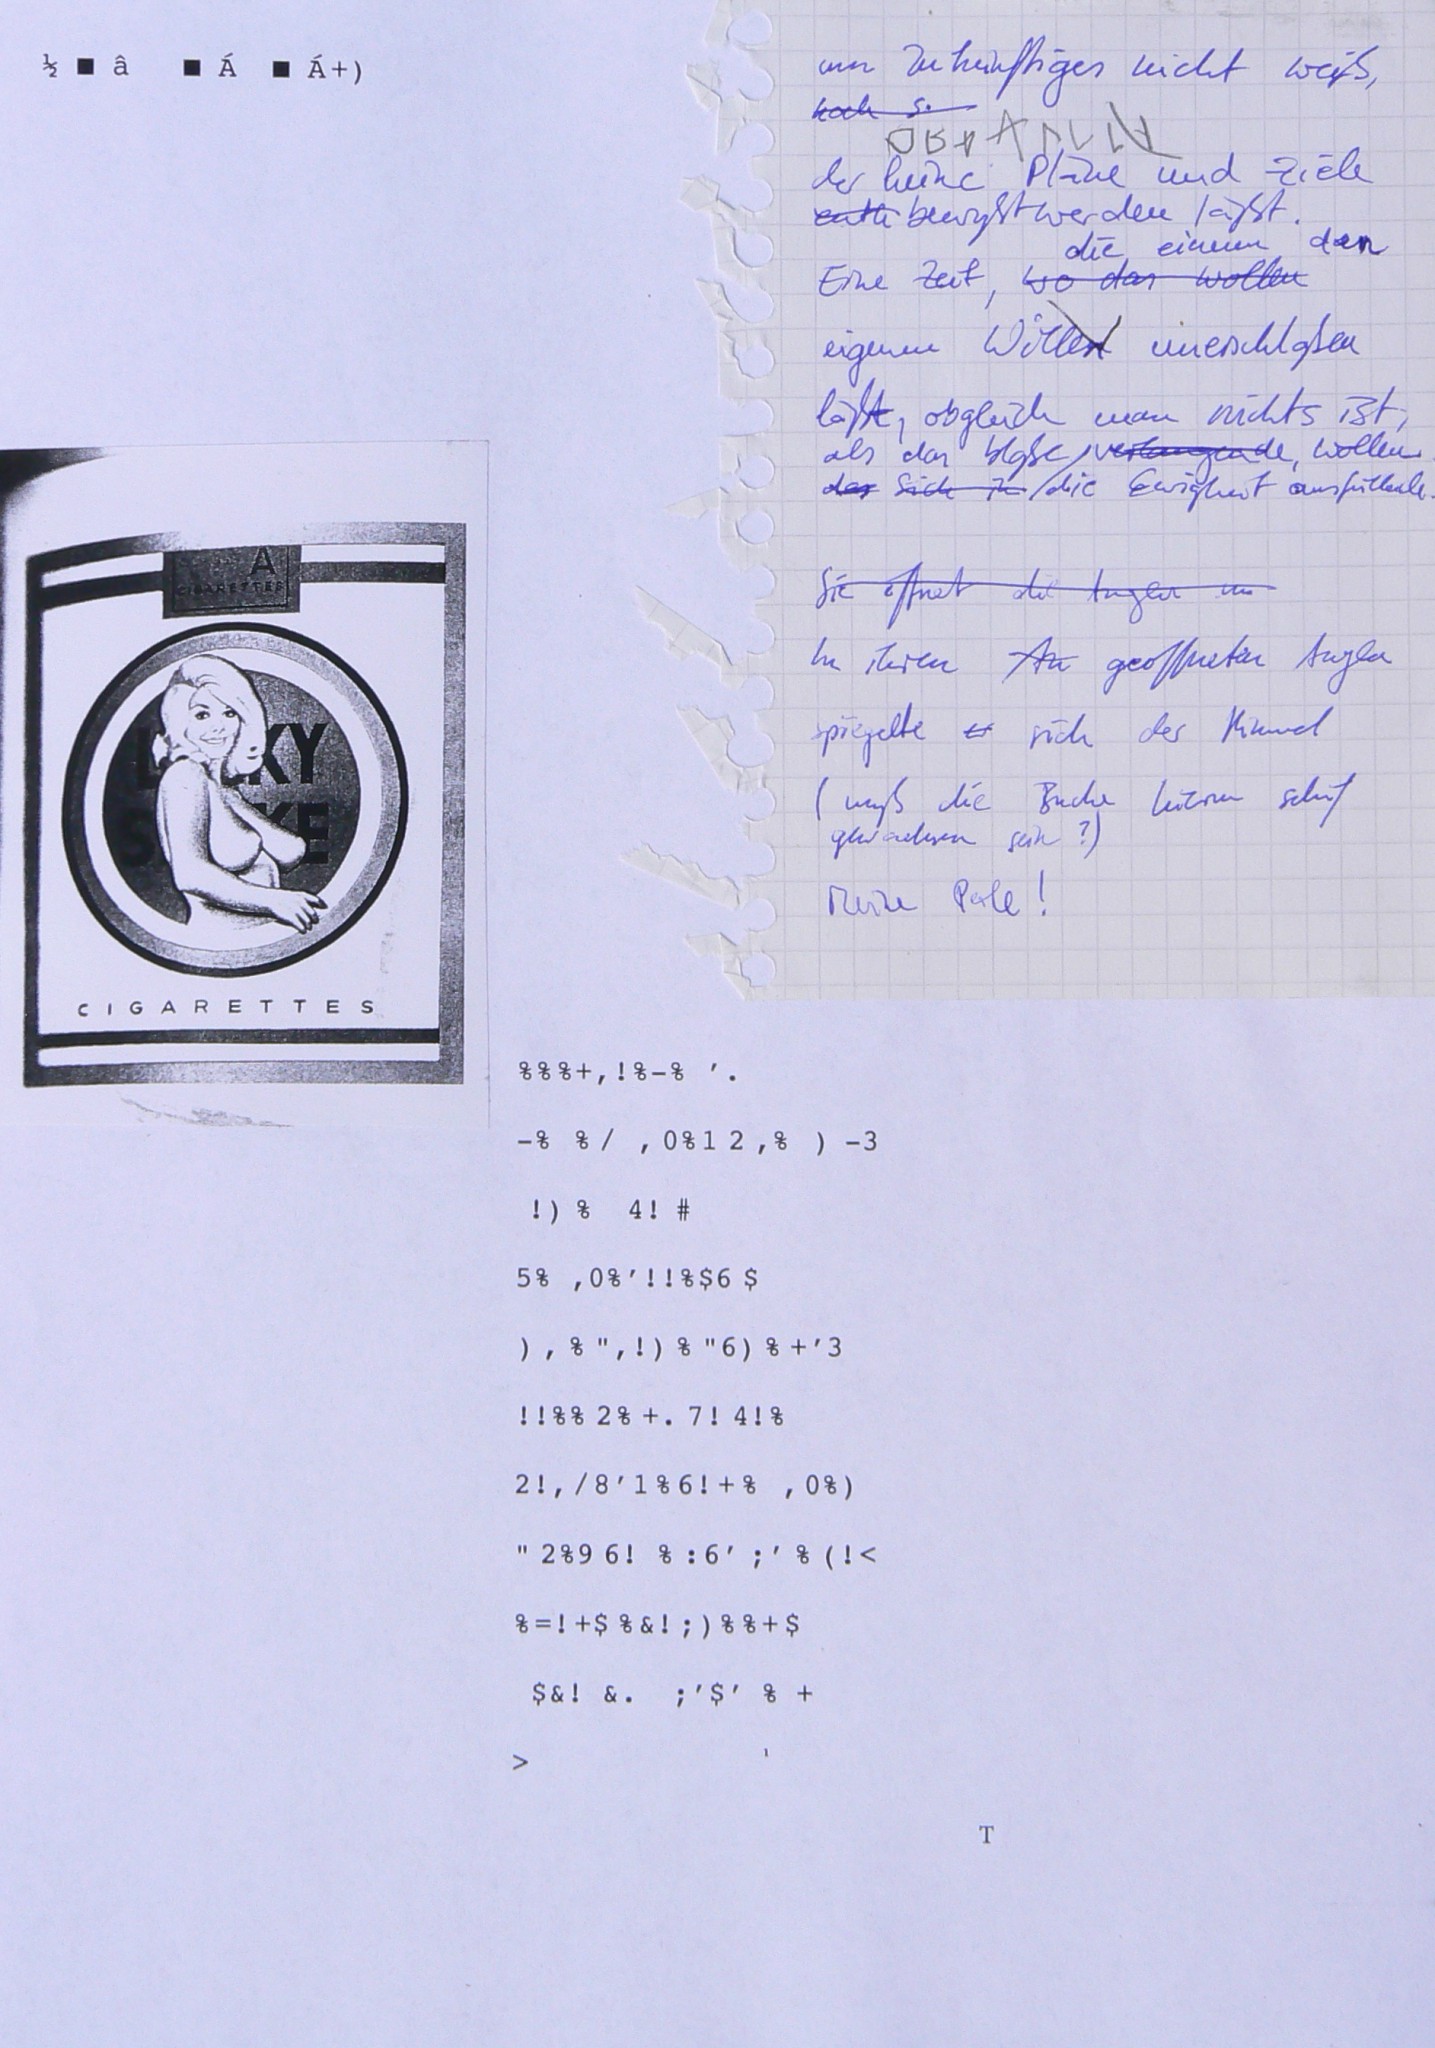 ½ ■ â ■ Á ■ Á+)
man Zukünftiges nicht weiß,
noch s.
der keine Pläne und Ziele
bewußt werden läßt.
die einem den
Eine Zeit, wo das wollen
eigenen Willen unerschloßen
läßt, obgleich man nichts ist,
als das bloße, verlangende, wollen
das sich in die Ewigkeit ausfüllende.
Sie öffnet die Augen un
In ihren Au geöffneten Augen
spiegelte er sich der Himmel
(muß die Buche hierum schief
gewachsen sein?)
Meine Perle!
A
CIGARETTES
LUCKY
STRIKE
CIGARETTES
%%%+,!%-% '.
-% %/ ,0%1 2 ,% ) -3
!) % 4! #
5% ,0%'!!%$6 $
) , % ",!) % "6) % +'3
!!%% 2% +. 7! 4!%
2!,/8'1%6!+% ,0%)
" 2%9 6! % :6' ;' % (!<
%=!+$ %&!;)%%+$
$&! &. ;'$' % +
> '
T